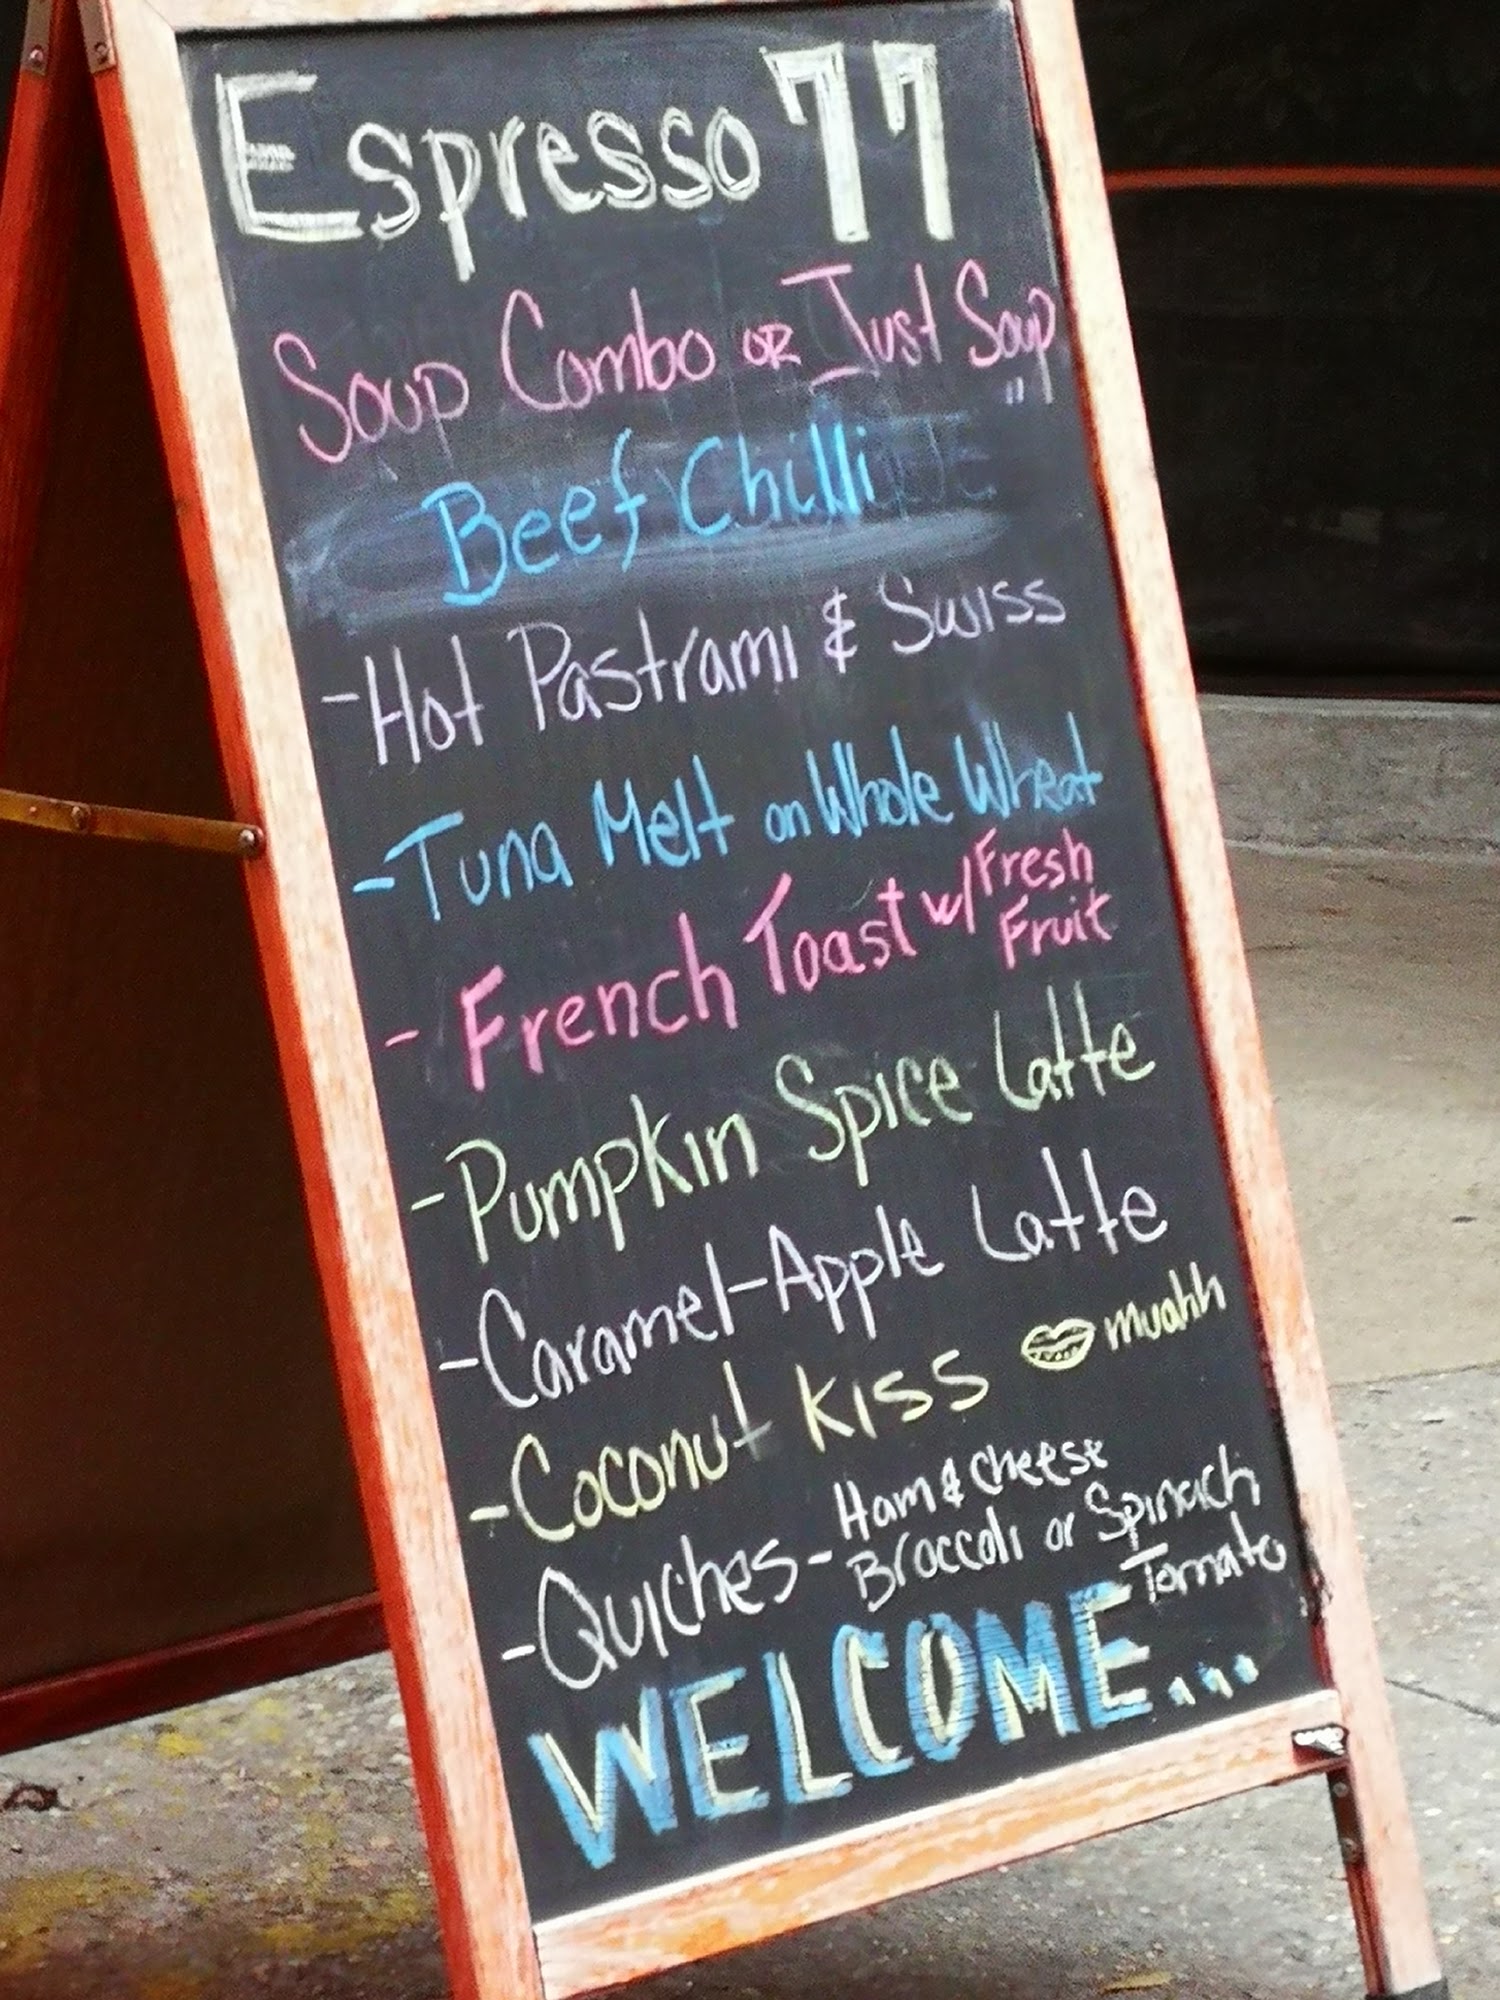 Espresso 77
Soup Combo OR Just Soup
"
Beef Chilli
-Hot Pastrami & Swiss
-Tuna Melt on Whole Wheat
-French Toast w/ Fresh
Fruit
-Pumpkin Spice Latte
-Caramel-Apple Latte
-Coconut Kiss muahh
-Quiches - Ham & Cheese
Broccoli or Spinach
Tomato
WELCOME...